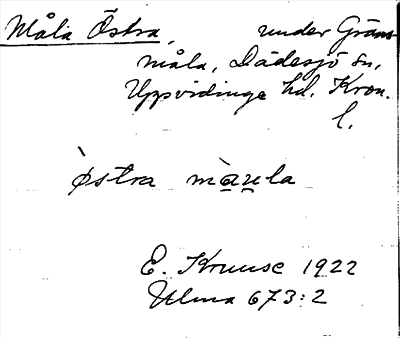 Måla Östra, under Gräns-
måla, Dädesjö sn,
Uppvidinge hd. Kron.
l.
òstra màu̯la
E. Kruuse 1922
Ulma 673:2